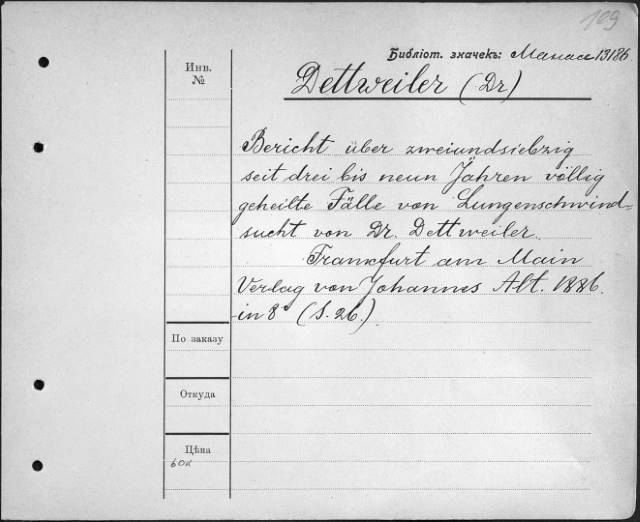 109
Библіот. значекъ: Манас 13186
Инв.
№
Dettweiler (Dr)
Bericht über zweiundsiebzig
seit drei bis neun Jahren völlig
geheilte Fälle von Lungenschwind=
sucht von Dr. Dettweiler.
Frankfurt am Main
Verlag von Johannes Alt. 1886.
in 8° (S. 26.)
По заказу
Откуда
Цѣна
60к